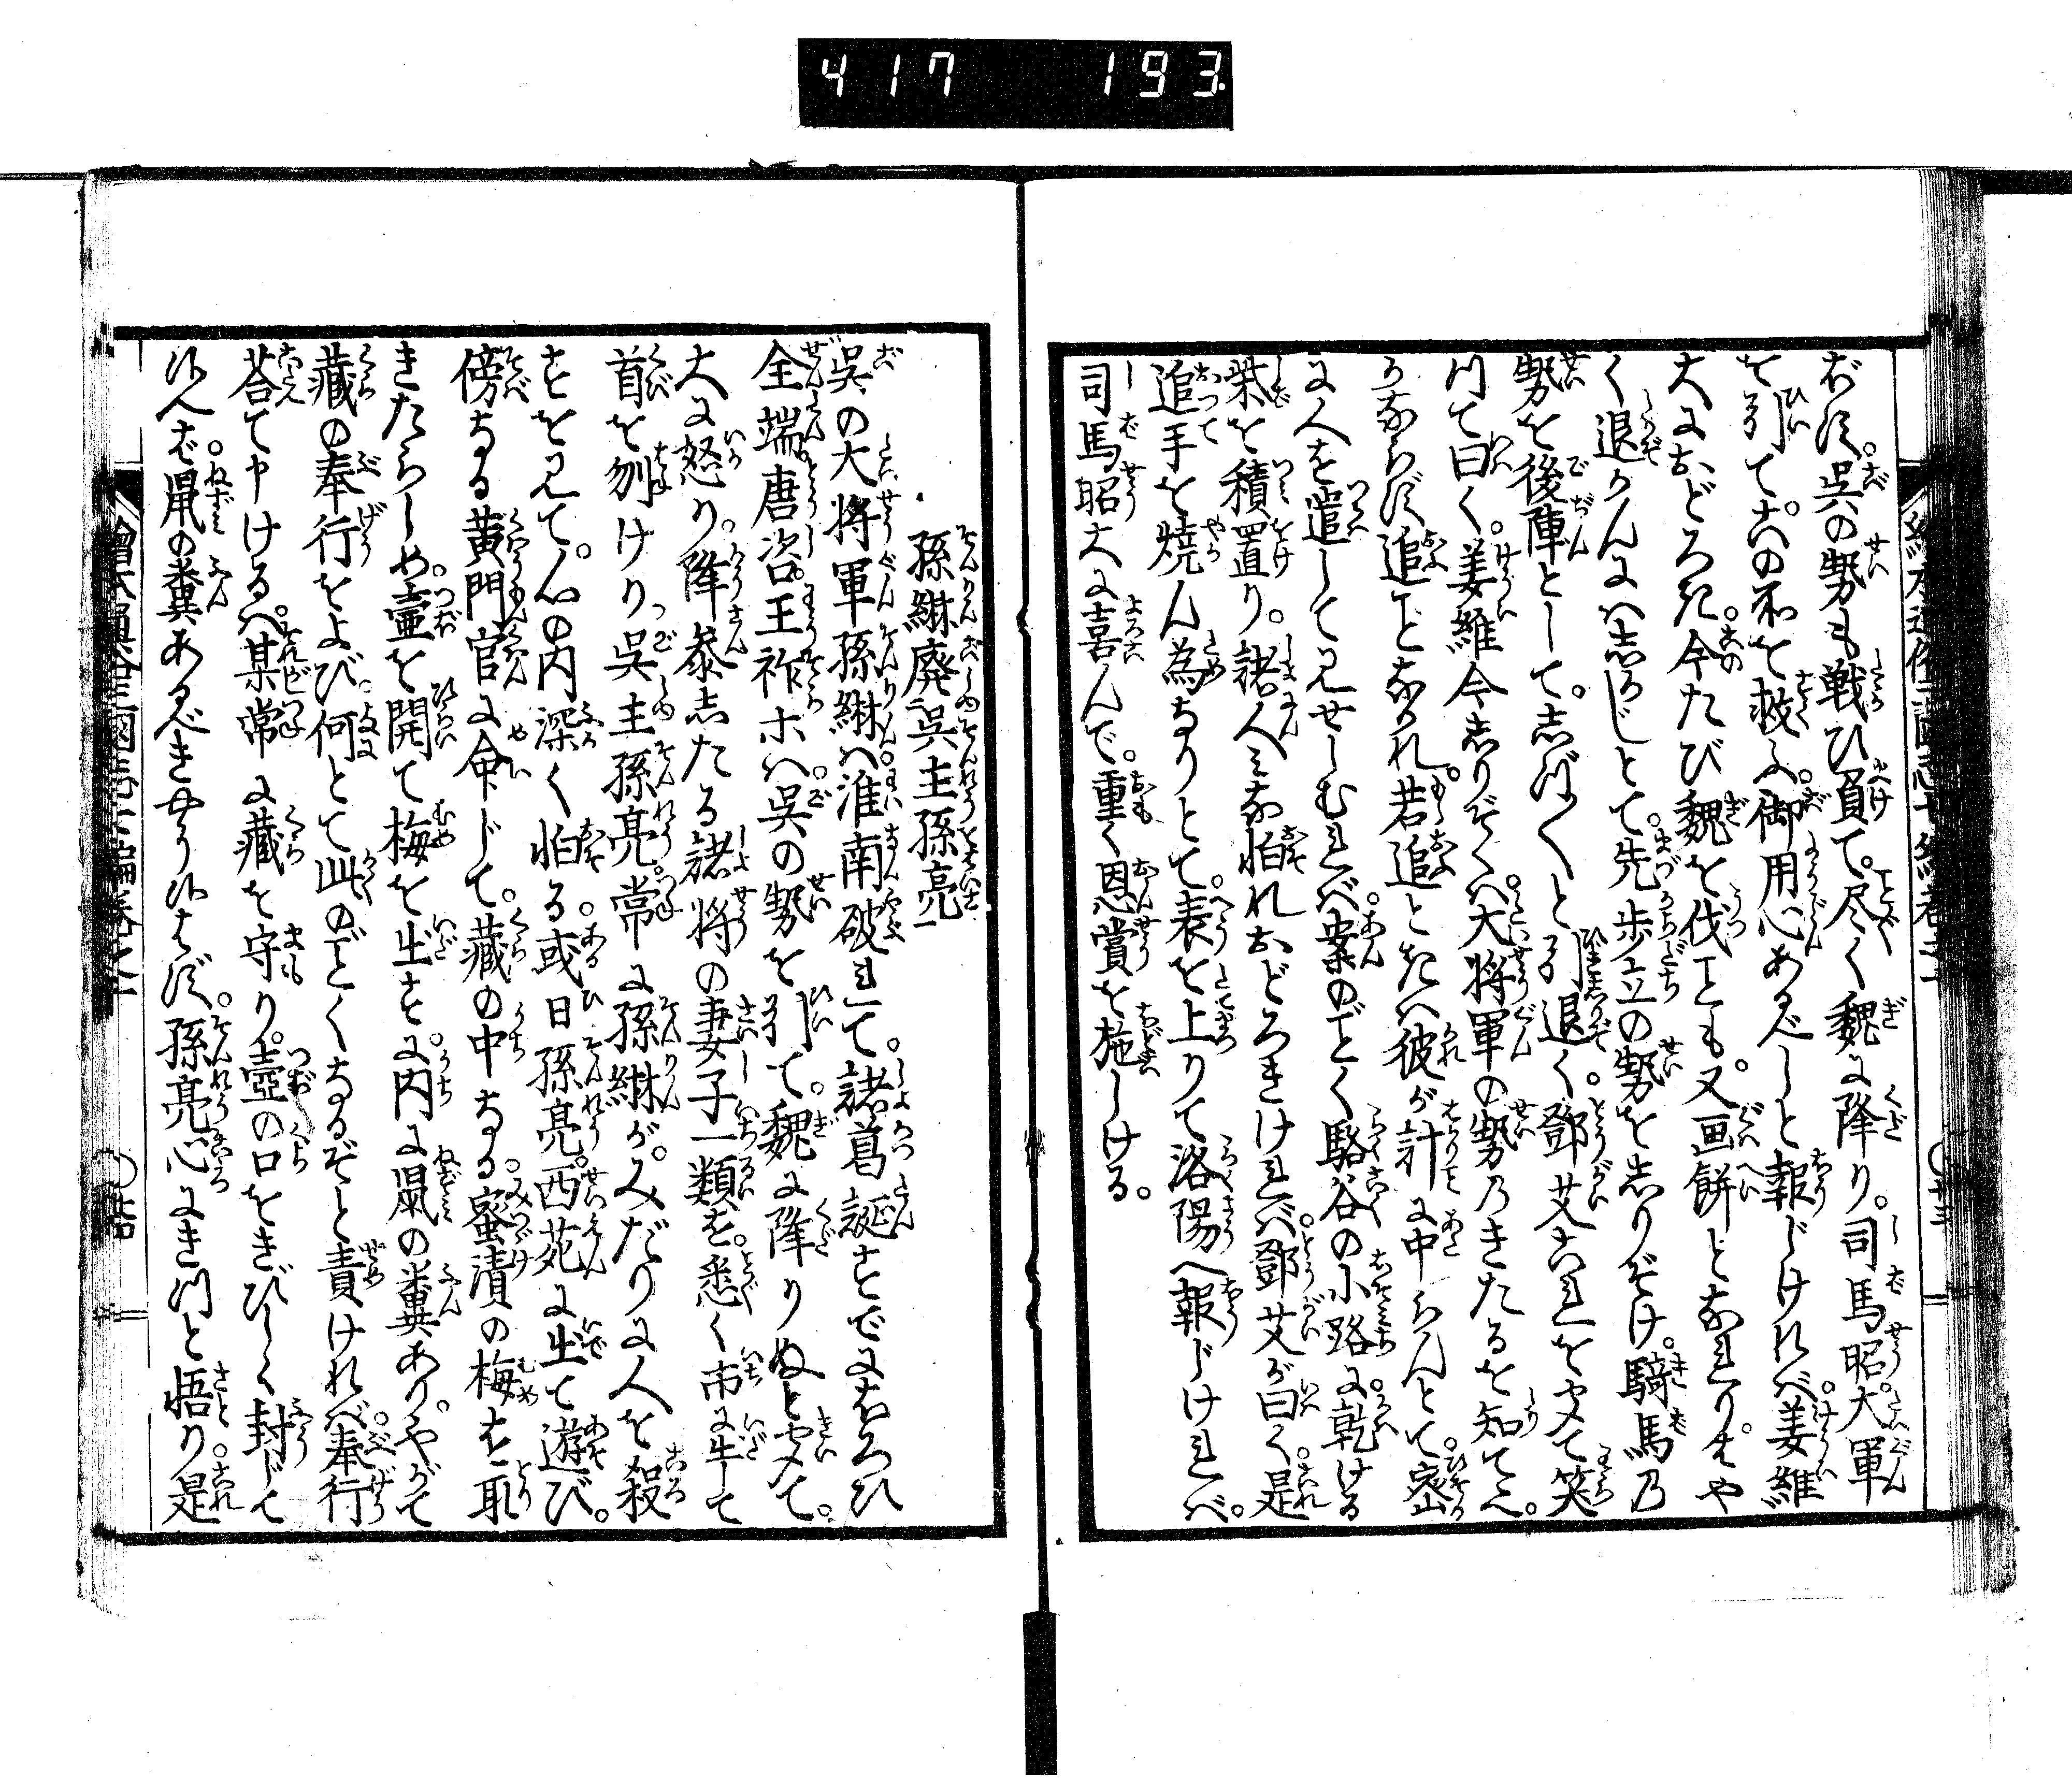 417 193.
ぼす。呉の勢も戦ひ負て。尽く魏に降り。司馬昭大軍
を引て。六の不を救ふ。御用心あるべしと報じけれバ。姜維
大におどろき。今たび魏を伐ことも。又画餅となれり。はや
く退かんにハしかじとて。先歩立の勢をしりぞけ。騎馬の
勢を後陣として。しづ〳〵と引退く。鄧艾これを聞て笑
つて曰く。姜維今しりぞくハ。大将軍の勢のきたるを知てなり。
かならず追ことなかれ。若追ときハ彼が計に中らんとて。密
に人を遣してみせしむれバ。案のごとく駱谷の小路に。乾ける
柴を積置り。諸人みな怕れおどろきけれバ。鄧艾が曰く。是
追手を焼ん為なりとて。表を上りて洛陽へ報じけれバ。
司馬昭大に喜んで。重く恩賞を施しける。
孫綝廢呉主孫亮
呉の大将軍孫綝ハ。淮南破れて諸葛誕すでにほろび
全端唐咨。王祚ホハ。呉の勢を引て。魏に降りぬと聞て。
大に怒り。降参したる諸将の妻子一類を。悉く市に牽て
首を刎けり。呉主孫亮。常に孫綝が。みだりに人を殺
すを見て。心の内深く怕る。或日孫亮。西苑に出て遊び。
傍なる黄門官に命じて。藏の中なる。蜜漬の梅を取
きたらしめ。壷を開て梅を出すに。内に鼠の糞あり。やがて
藏の奉行をよび。何とて此のごとくなるぞと責けれバ。奉行
荅て申けるハ。某常に藏を守り。壷の口をきびしく封じて
候へば。鼠の糞あるべきやう候はず。孫亮心にきつと悟り。是